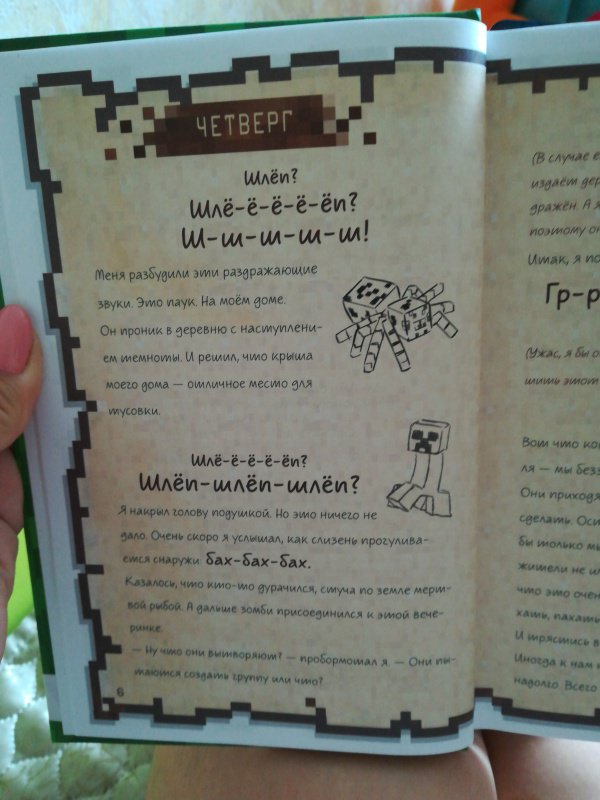 ЧЕТВЕРГ
Шлёп?
Шлё-ё-ё-ё-ёп?
Ш-ш-ш-ш-ш!
Меня разбудили эти раздражающие
звуки. Это паук. На моём доме.
Он проник в деревню с наступлени-
ем темноты. И решил, что крыша
моего дома — отличное место для
тусовки.
Шлё-ё-ё-ё-ёп?
Шлёп-шлёп-шлёп?
Я накрыл голову подушкой. Но это ничего не
дало. Очень скоро я услышал, как слизень прогулива-
ется снаружи бах-бах-бах.
Казалось, что кто-то дурачился, стуча по земле мерт-
вой рыбой. А дальше зомби присоединился к этой вече-
ринке.
— Ну что они вытворяют? — пробормотал я. — Они пы-
таются создать группу или что?
6
(В случае
издаёт
дражён. А я
поэтому
Итак, я
Гр-р
(Ужас, я бы
шить этот
Вот что
ля — мы
Они
сделать.
бы только
жители не
что это
хать, пахать
И трястись в
Иногда к нам
надолго. Всего